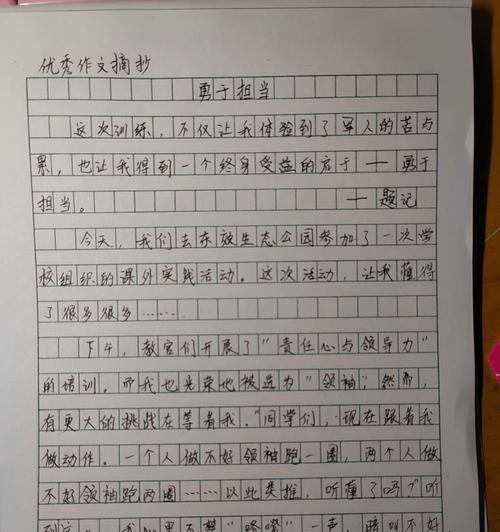 优秀作文摘抄
勇于担当
这次训练，不仅让我体验到了军人的苦与
累，也让我得到一个终身受益的启于——勇于
担当。——题记
今天，我们去东放生态公园参加了一次学
校组织的课外实践活动。这次活动，让我懂得
了很多很多……
下午，教官们开展了“责任心与领导力”
的培训。而我也光荣地被选为“领袖”；然而，
有更大的挑战在等着我。“同学们，现在跟着我
做动作。一个人做不好领袖跑一圈，两个人做
不好领袖跑两圈……以此类推，听懂了吗？”听
到这，我心里不禁“噔噔”一声，暗叫不好